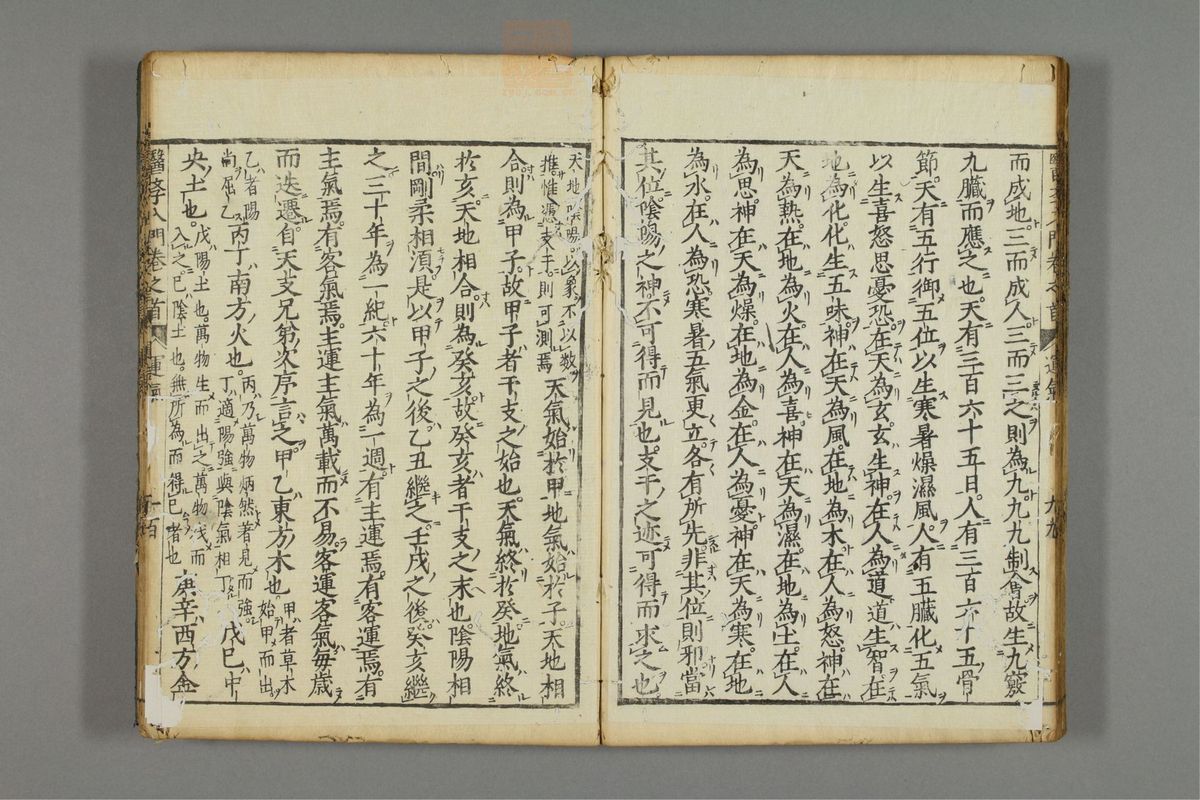 而成地三而成人三而三之則為九九九制會故生九竅
九臟而應之也天有三百六十五日人有三百六十五骨
節天有五行御五位以生寒暑燥濕風人有五臟化五氣
以生喜怒思憂恐在天為玄玄生神在人為道道生智在
地為化化生五味神在天為風在地為木在人為怒神在
天為熱在地為火在人為喜神在天為濕在地為土在人
為思神在天為燥在地為金在人為憂神在天為寒在地
為水在人為恐寒暑五氣更立各有所先非其位則邪當
其位陰陽之神不可得而見也支干之迹可得而求之也
天地陰陽以象不以數
推惟憑支干則可測焉
天氣始於甲地氣始於子天地相
合則為甲子故甲子者干支之始也天氣終於癸地氣終
於亥天地相合則為癸亥故癸亥者干支之末也陰陽相
間剛柔相須是以甲子之後乙丑繼之壬戌之後癸亥繼
之三十年為一紀六十年為一週有主運焉有客運焉有
主氣焉有客氣焉主運主氣萬載而不易客運客氣每歲
而迭遷自天支兄弟次序言之甲乙東方木也
甲者草木
始甲而出
乙者陽
尚屈乙
丙丁南方火也
丙乃萬物炳然著見而強
丁適陽強與陰氣相丁
戊巳中
央土也
戊陽土也萬物生而出之萬物伐而
入之巳陰土也無所為而得巳者也
庚辛西方金
醫學入門卷之首
運氣
九九
醫學入門卷之首
運氣
一百